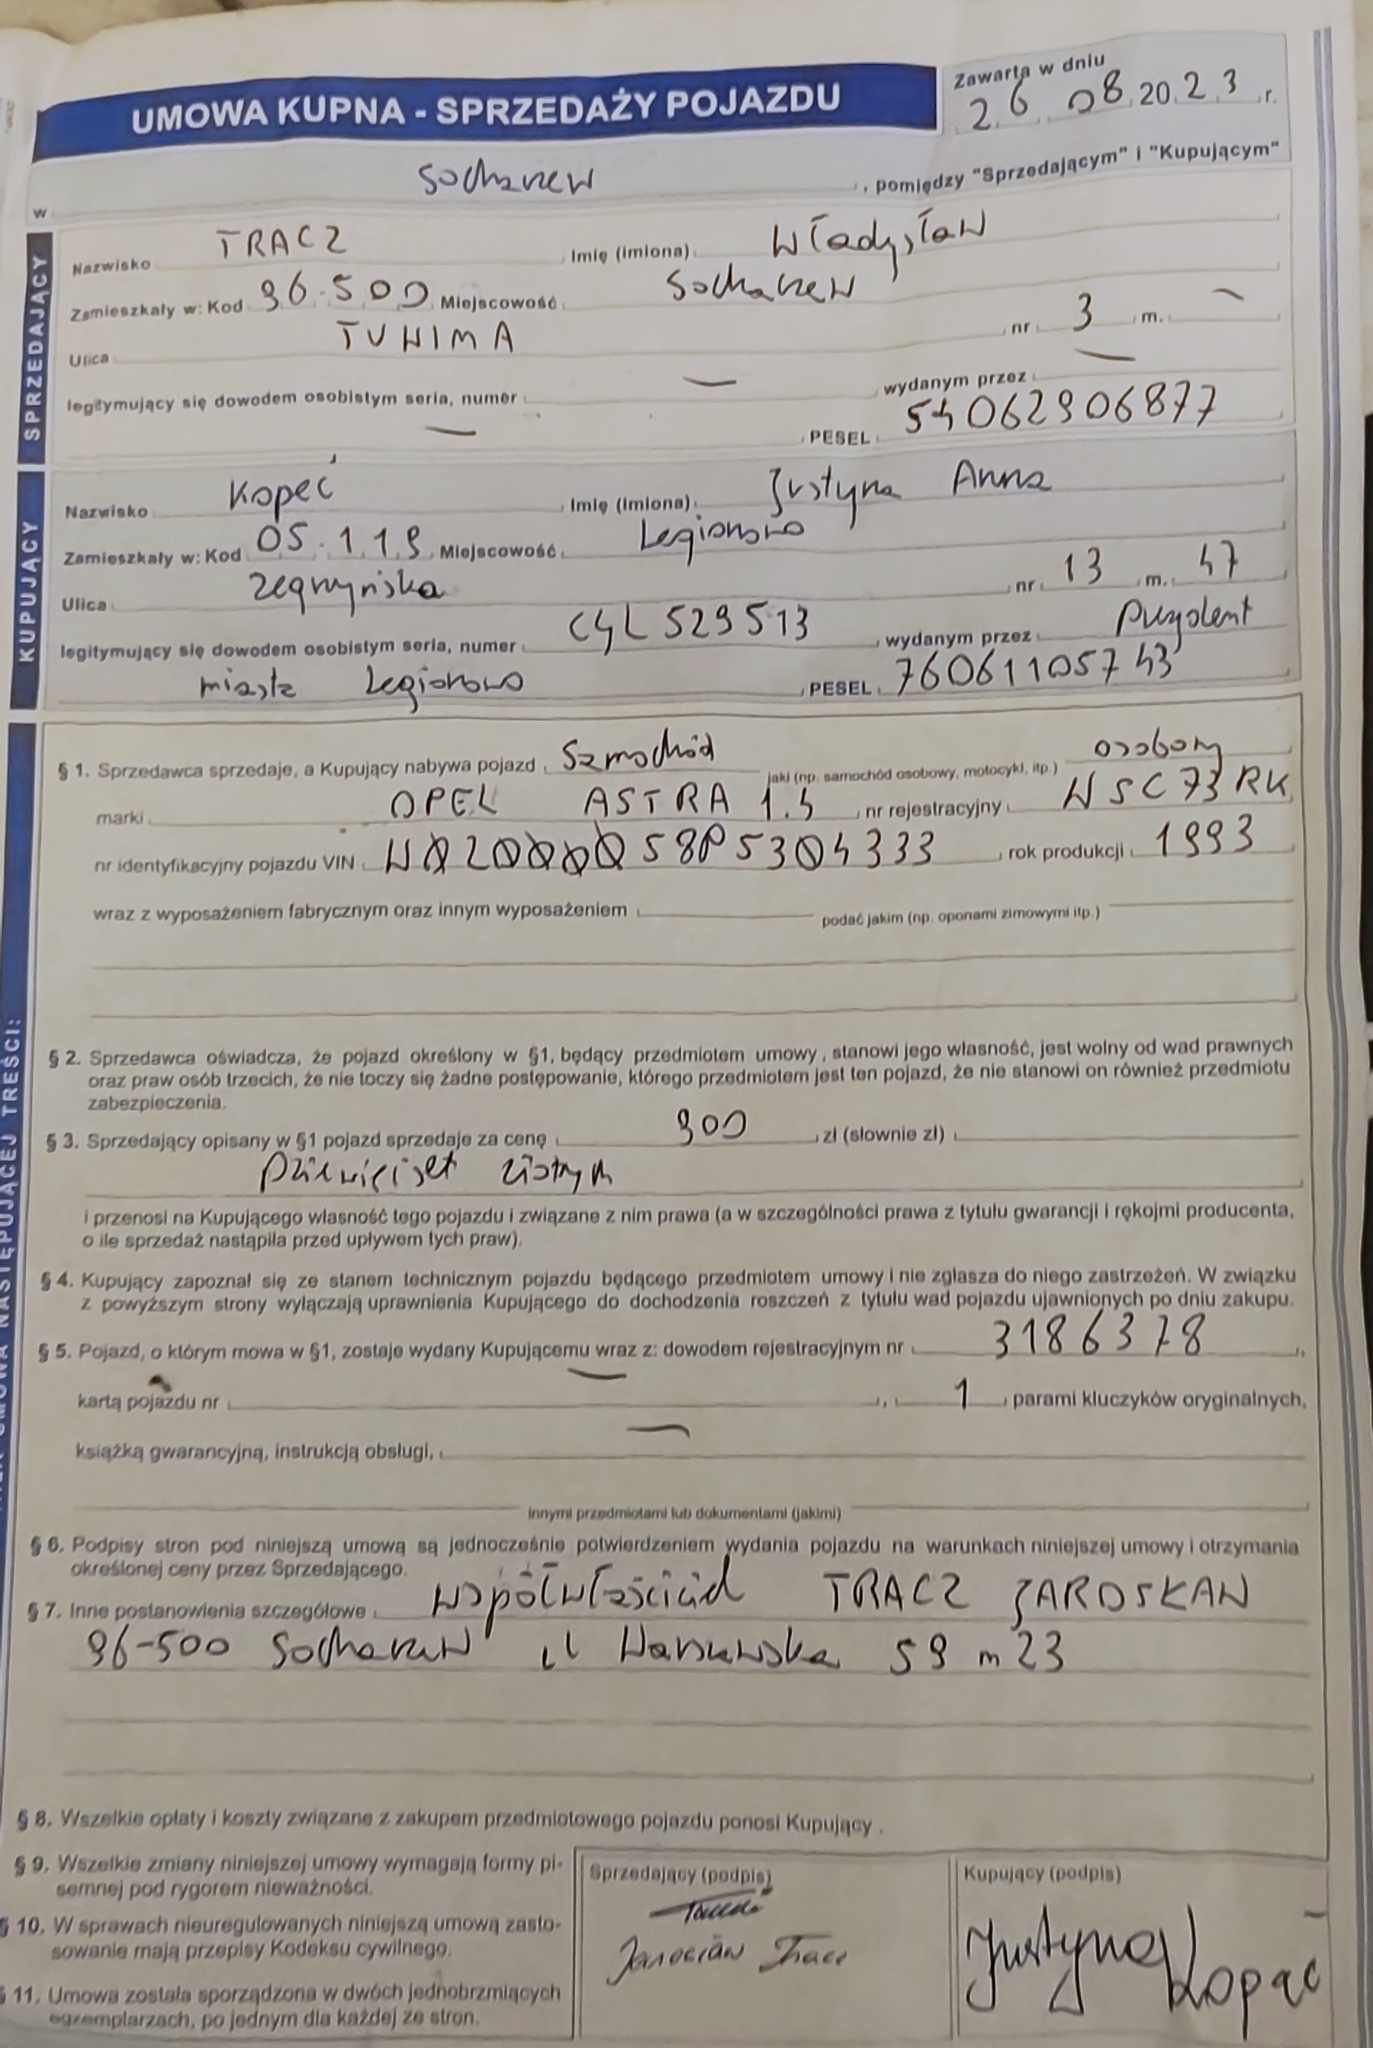 UMOWA KUPNA - SPRZEDAŻY POJAZDU
Zawarta w dniu
26 08 2023 r.
w Sochaczew, pomiędzy "Sprzedającym" i "Kupującym"
SPRZEDAJĄCY
Nazwisko TRACZ Imię (imiona) Władysław
Zamieszkały w: Kod 96-500 Miejscowość Sochaczew
Ulica TUWIMA nr 3 m. —
legitymujący się dowodem osobistym seria, numer — wydanym przez —
— PESEL 54062906877
KUPUJĄCY
Nazwisko Kopeć Imię (imiona) Justyna Anna
Zamieszkały w: Kod 05-119 Miejscowość Legionowo
Ulica Zegrzyńska nr 13 m. 47
legitymujący się dowodem osobistym seria, numer 529513 wydanym przez Prezydent
miasta Legionowo PESEL 76061105743
§ 1. Sprzedawca sprzedaje, a Kupujący nabywa pojazd Samochód osobowy
jaki (np. samochód osobowy, motocykl, itp.)
marki OPEL ASTRA 1.4 nr rejestracyjny WSC73RK
nr identyfikacyjny pojazdu VIN W0L000058P5304333 rok produkcji 1993
wraz z wyposażeniem fabrycznym oraz innym wyposażeniem
podać jakim (np. oponami zimowymi itp.)
§ 2. Sprzedawca oświadcza, że pojazd określony w §1, będący przedmiotem umowy, stanowi jego własność, jest wolny od wad prawnych
oraz praw osób trzecich, że nie toczy się żadne postępowanie, którego przedmiotem jest ten pojazd, że nie stanowi on również przedmiotu
zabezpieczenia.
§ 3. Sprzedający opisany w §1 pojazd sprzedaje za cenę 900 zł (słownie zł)
Dziewięćset złotych
i przenosi na Kupującego własność tego pojazdu i związane z nim prawa (a w szczególności prawa z tytułu gwarancji i rękojmi producenta,
o ile sprzedaż nastąpiła przed upływem tych praw).
§ 4. Kupujący zapoznał się ze stanem technicznym pojazdu będącego przedmiotem umowy i nie zgłasza do niego zastrzeżeń. W związku
z powyższym strony wyłączają uprawnienia Kupującego do dochodzenia roszczeń z tytułu wad pojazdu ujawnionych po dniu zakupu.
§ 5. Pojazd, o którym mowa w §1, zostaje wydany Kupującemu wraz z: dowodem rejestracyjnym nr 3186378,
kartą pojazdu nr —, 1 parami kluczyków oryginalnych,
książką gwarancyjną, instrukcją obsługi, —
innymi przedmiotami lub dokumentami (jakimi)
§ 6. Podpisy stron pod niniejszą umową są jednocześnie potwierdzeniem wydania pojazdu na warunkach niniejszej umowy i otrzymania
określonej ceny przez Sprzedającego.
§ 7. Inne postanowienia szczegółowe współwłaściciel TRACZ JAROSŁAW
96-500 Sochaczew ul Warszawska 59 m 23
§ 8. Wszelkie opłaty i koszty związane z zakupem przedmiotowego pojazdu ponosi Kupujący.
§ 9. Wszelkie zmiany niniejszej umowy wymagają formy pi-
semnej pod rygorem nieważności.
§ 10. W sprawach nieuregulowanych niniejszą umową zasto-
sowanie mają przepisy Kodeksu cywilnego.
§ 11. Umowa została sporządzona w dwóch jednobrzmiących
egzemplarzach, po jednym dla każdej ze stron.
Sprzedający (podpis)
Jarosław Tracz
Kupujący (podpis)
Justyna Kopeć